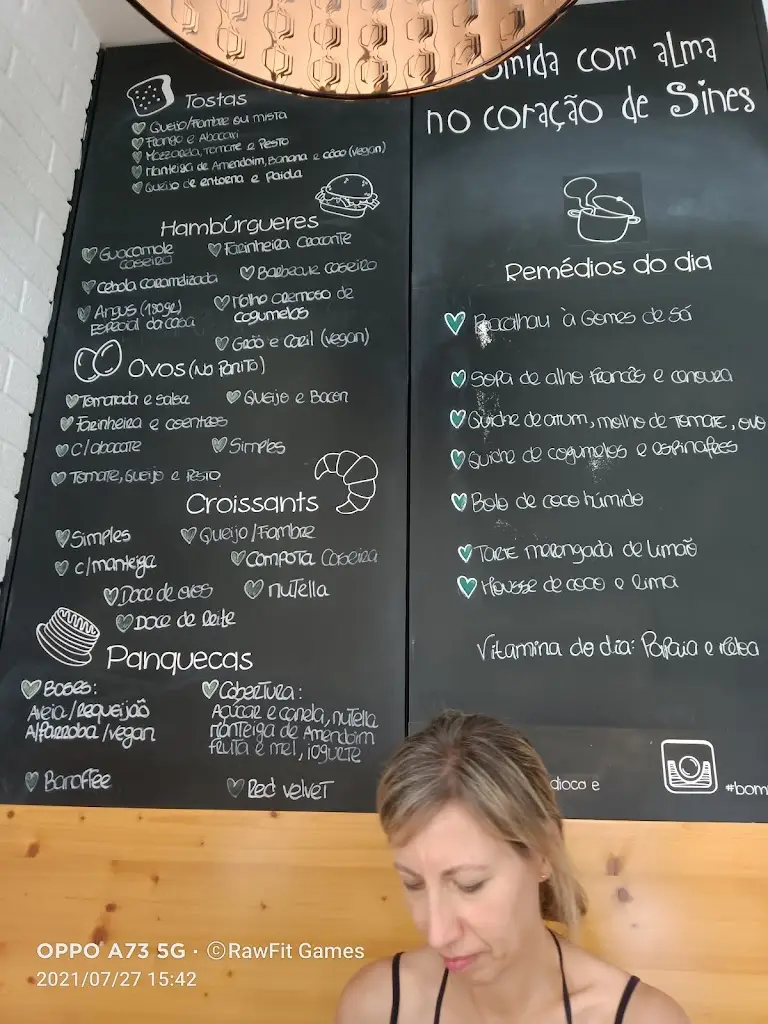 Tostas
Queijo/Fiambre ou mista
Frango e Abacaxi
Mozzarela, Tomate e Pesto
Manteiga de Amendoim, Banana e côco (vegan)
Queijo de entorna e Paiola
Hambúrgueres
Guacamole caseiro
Farinheira Crocante
Cebola caramelizada
Barbecue caseiro
Angus (180gr)
Especial da casa
Molho cremoso de
cogumelos
Grão e Caril (vegan)
Ovos (no Panito)
Tomatada e salsa
Queijo e Bacon
Farinheira e coentros
c/abacate
Simples
Tomate, Queijo e Pesto
Croissants
Simples
Queijo/Fiambre
c/manteiga
Compota Caseira
Doce de ovos
nutella
Doce de leite
Panquecas
Bases:
Aveia/Requeijão
Alfarroba/vegan
Cobertura:
Açúcar e canela, nutella
manteiga de Amendoim
fruta e mel, iogurte
Banoffee
Red velvet
com alma
no coração de Sines
Remédios do dia
Bacalhau à Gomes de Sá
Sopa de alho francês e cenoura
Quiche de atum, molho de tomate, ovo
Quiche de cogumelos e espinafres
Bolo de coco húmido
Tarte merengada de limão
Mousse de coco e lima
Vitamina do dia: Papaia e
#bom
OPPO A73 5G · ©RawFit Games
2021/07/27 15:42